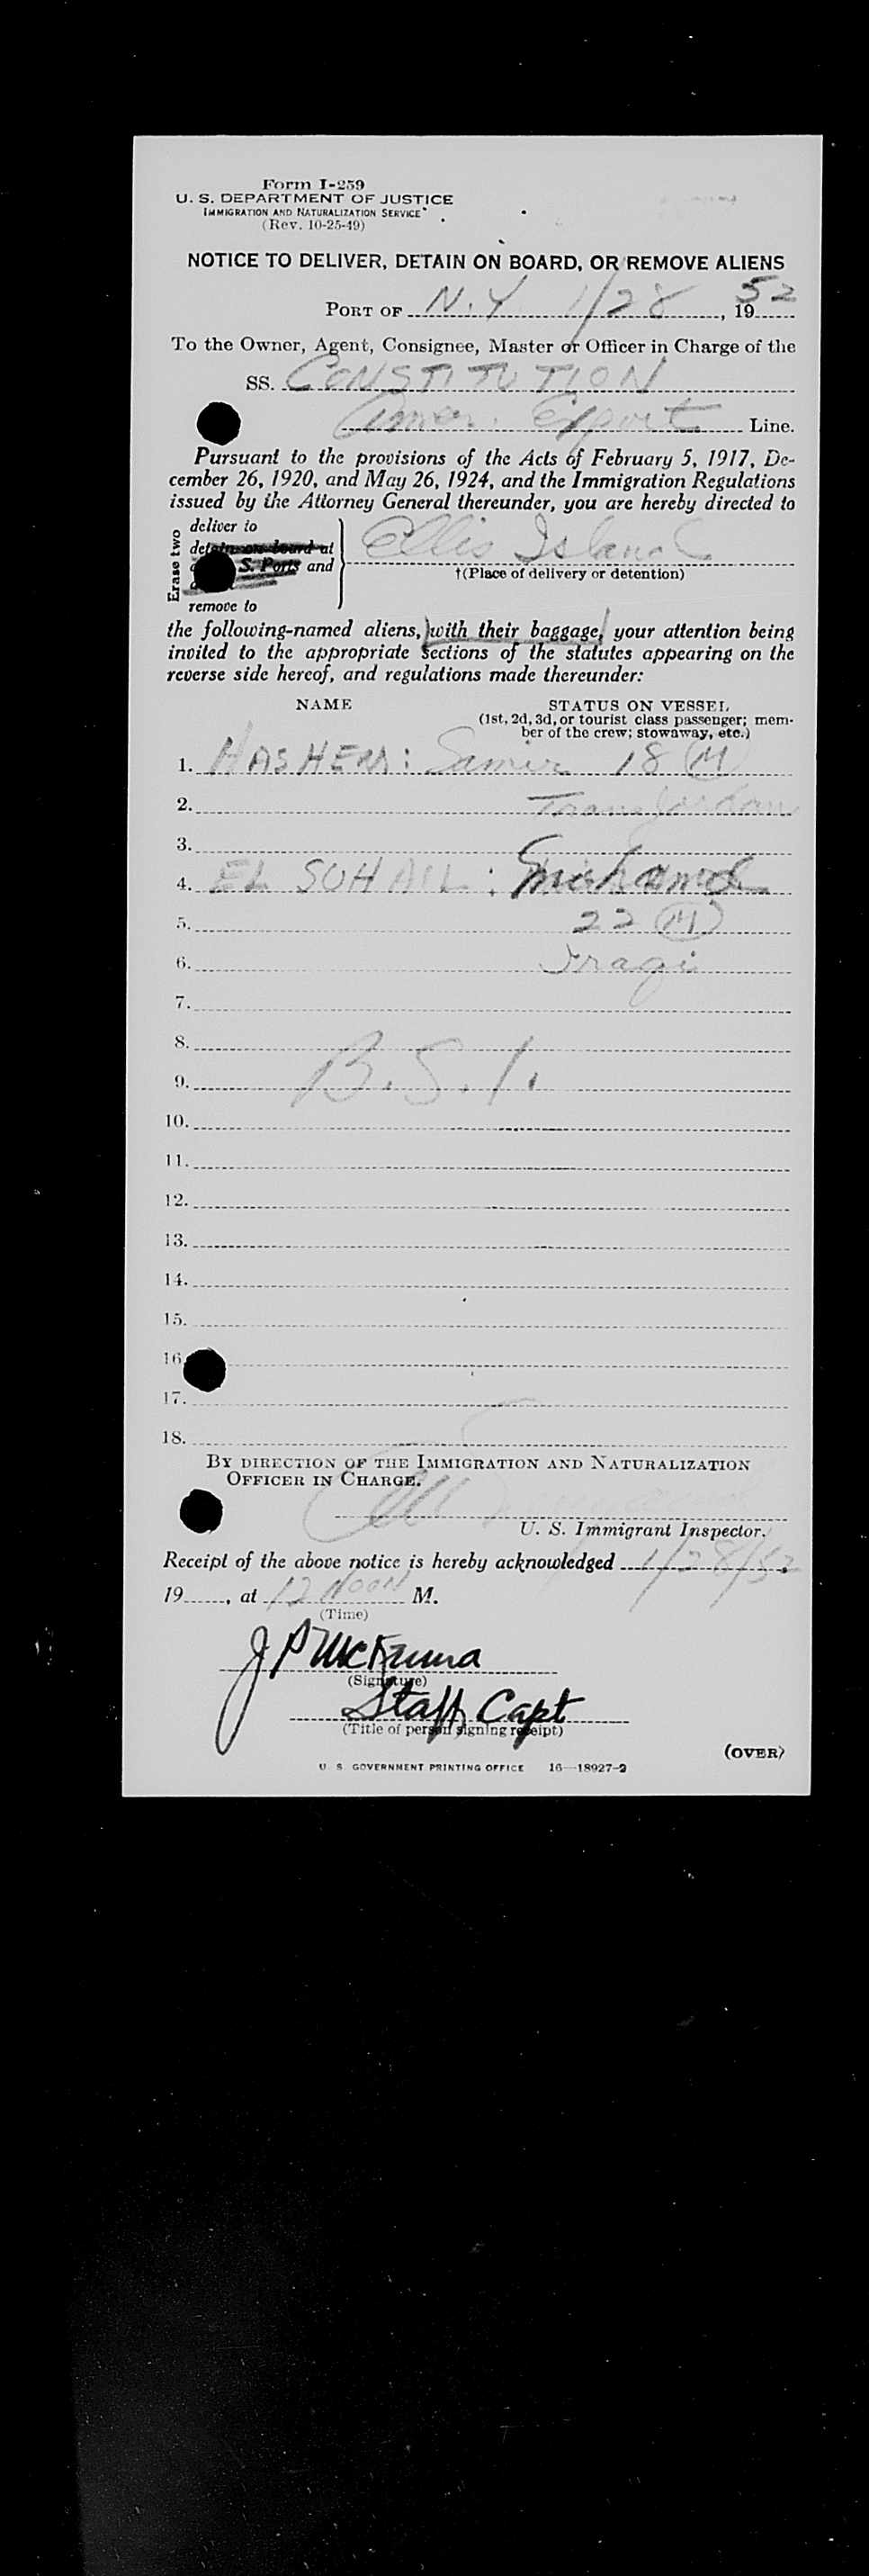 Form I-259
U. S. DEPARTMENT OF JUSTICE
IMMIGRATION AND NATURALIZATION SERVICE
(Rev. 10-25-49)
NOTICE TO DELIVER, DETAIN ON BOARD, OR REMOVE ALIENS
PORT OF N.Y 1/28, 1952
To the Owner, Agent, Consignee, Master or Officer in Charge of the
SS. CONSTITUTION
Amer. Export Line.
Pursuant to the provisions of the Acts of February 5, 1917, De-
cember 26, 1920, and May 26, 1924, and the Immigration Regulations
issued by the Attorney General thereunder, you are hereby directed to
Erase two
deliver to
detain on board at
S. Ports and
remove to
Ellis Island
†(Place of delivery or detention)
the following-named aliens, with their baggage, your attention being
invited to the appropriate sections of the statutes appearing on the
reverse side hereof, and regulations made thereunder:
NAME STATUS ON VESSEL
(1st, 2d, 3d, or tourist class passenger; mem-
ber of the crew; stowaway, etc.)
1. Samir 18 (M)
2. Trans Jordan
3.
4. EL SUHAIL:
5. 22 (M)
6. Iraqi
7.
8.
9. B.S.I.
10.
11.
12.
13.
14.
15.
16
17.
18.
BY DIRECTION OF THE IMMIGRATION AND NATURALIZATION
OFFICER IN CHARGE.
U. S. Immigrant Inspector.
Receipt of the above notice is hereby acknowledged 1/28/52,
19......, at 12 NOON M.
(Time)
J P McKenna
(Signature)
Staff Capt
(Title of person signing receipt)
(OVER)
U. S. GOVERNMENT PRINTING OFFICE 16—18927-2